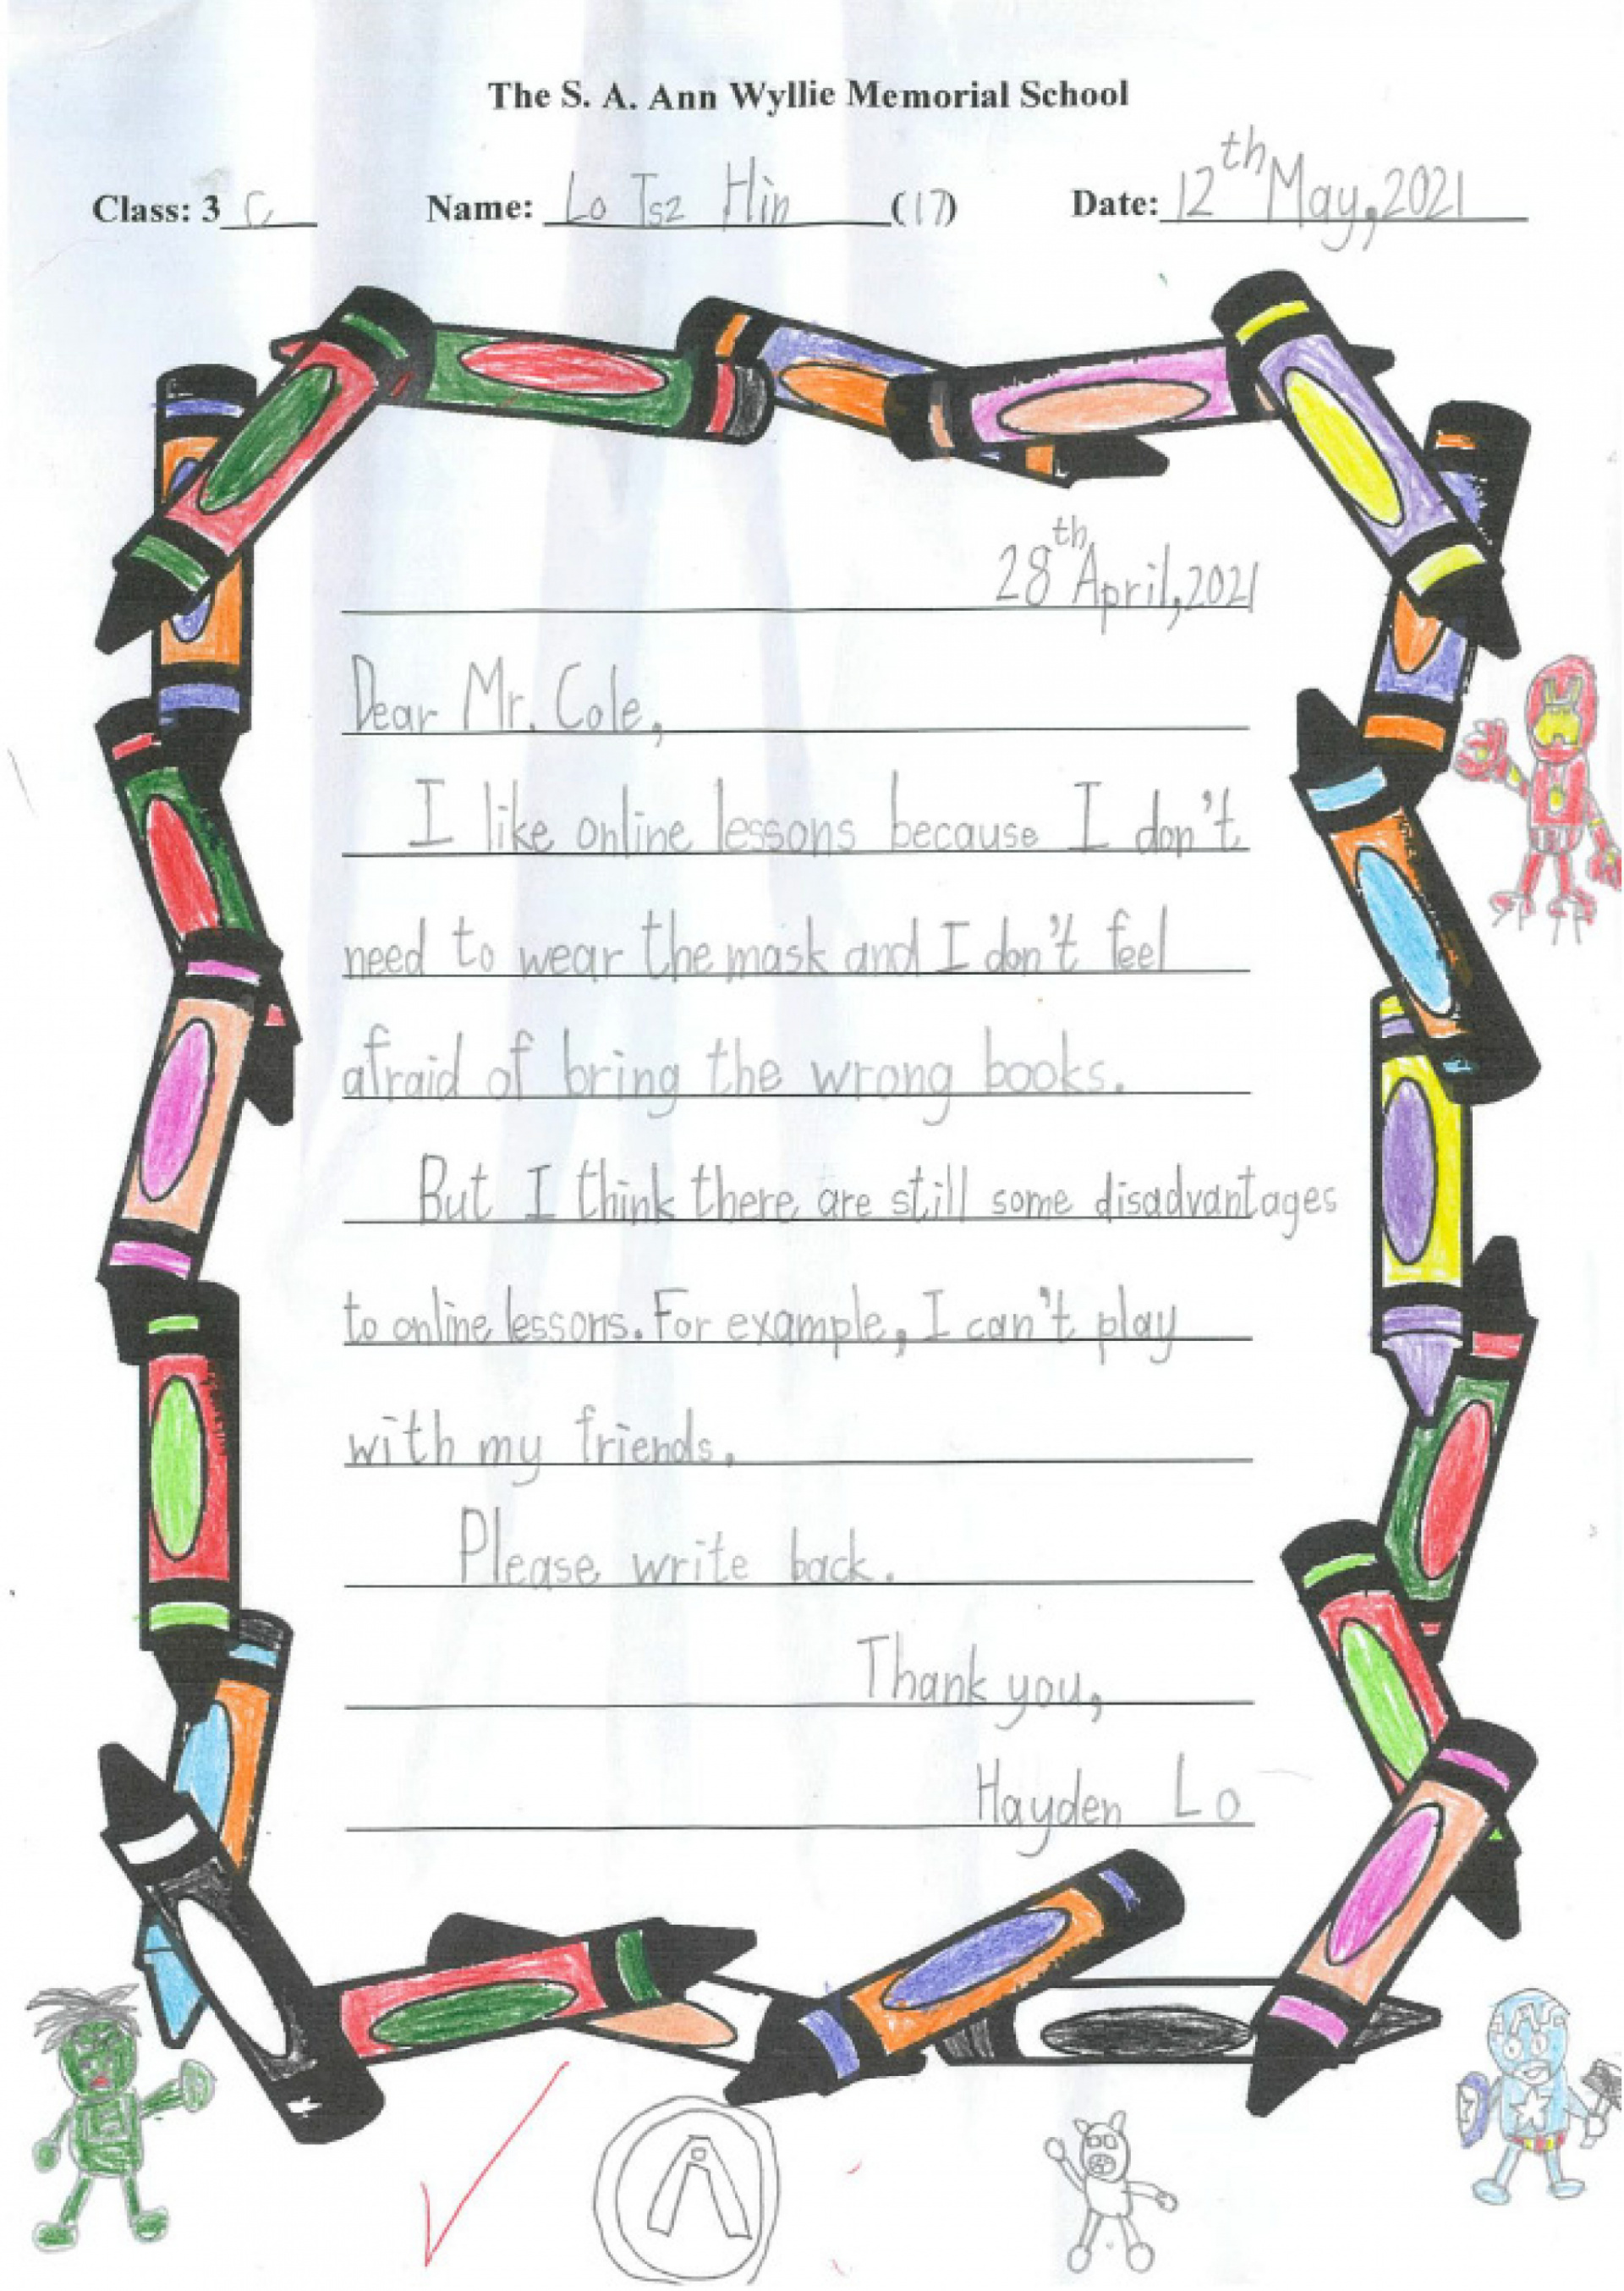 The S. A. Ann Wyllie Memorial School
Class: 3 C Name: Lo Tsz Hin (17) Date: 12th May, 2021
28th April, 2021
Dear Mr. Cole,
I like online lessons because I don't
need to wear the mask and I don't feel
afraid of bring the wrong books.
But I think there are still some disadvantages
to online lessons. For example, I can't play
with my friends.
Please write back.
Thank you,
Hayden Lo